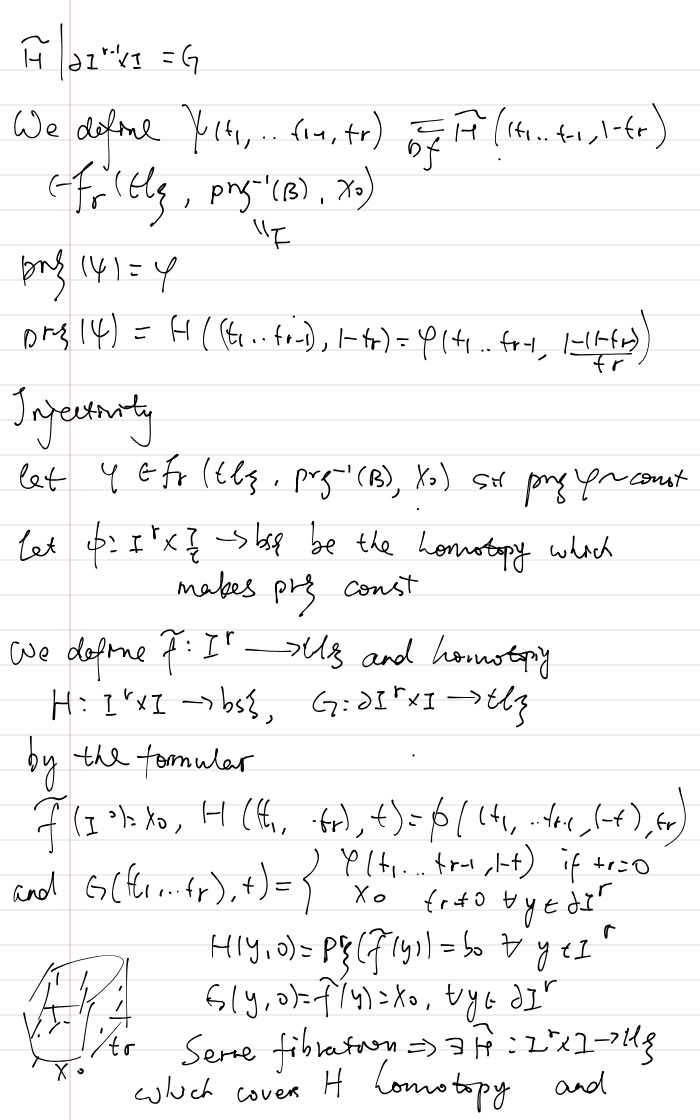 H̃ | ∂I^{r-1}×I = G
We define ψ(t₁, .. t_{r-1}, t_r) =_{Df} H̃ ((t₁ .. t_{r-1}, 1-t_r)
∈ F_r (tlξ, prξ⁻¹(B), x₀)
"F
prξ (ψ) = φ
prξ (ψ) = H ((t₁ .. t_{r-1}), 1-t_r) = φ(t₁ .. t_{r-1}, 1-(1-t_r))
t_r
Injectivity
let φ ∈ F_r (tlξ, prξ⁻¹(B), x₀) s.t prξ φ ~ const
let ϕ: I^r × I → bsξ be the homotopy which
makes prξ const
We define f̃: I^r → tlξ and homotopiy
H: I^r×I → bsξ, G: ∂I^r×I → tlξ
by the formular
f̃ (I^r) = x₀, H ((t₁, .. t_r), t) = ϕ((t₁, .. t_{r-1}, 1-t), t_r)
and G((t₁ ... t_r), t) = { φ(t₁ ... t_{r-1}, 1-t) if t_r=0
x₀ t_r≠0 ∀ y ∈ ∂I^r
H(y, 0) = prξ(f̃(y)) = b₀ ∀ y ∈ I^r
G(y, 0) = f̃(y) = x₀, ∀y ∈ ∂I^r
t_r
x₀
Serre fibration ⇒ ∃ H̃ : I^r×I → tlξ
which covers H homotopy and